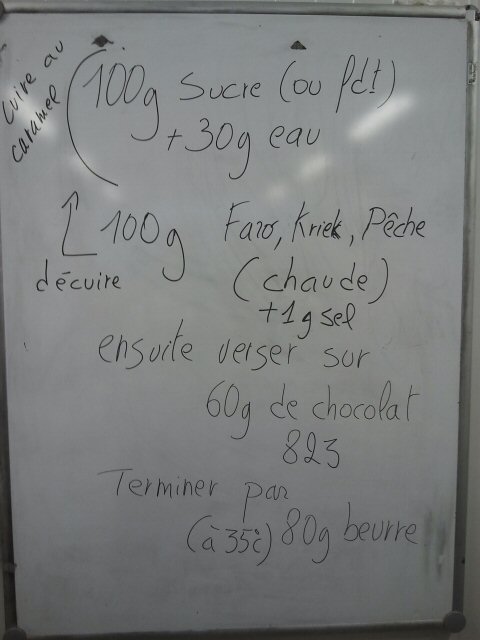 cuire au
caramel
100g sucre (ou fdt)
+ 30g eau
100g Faro, Kriek, Pêche
décuire (chaude)
+1g sel
ensuite verser sur
60g de chocolat
823
Terminer par
(à 35°c) 80g beurre